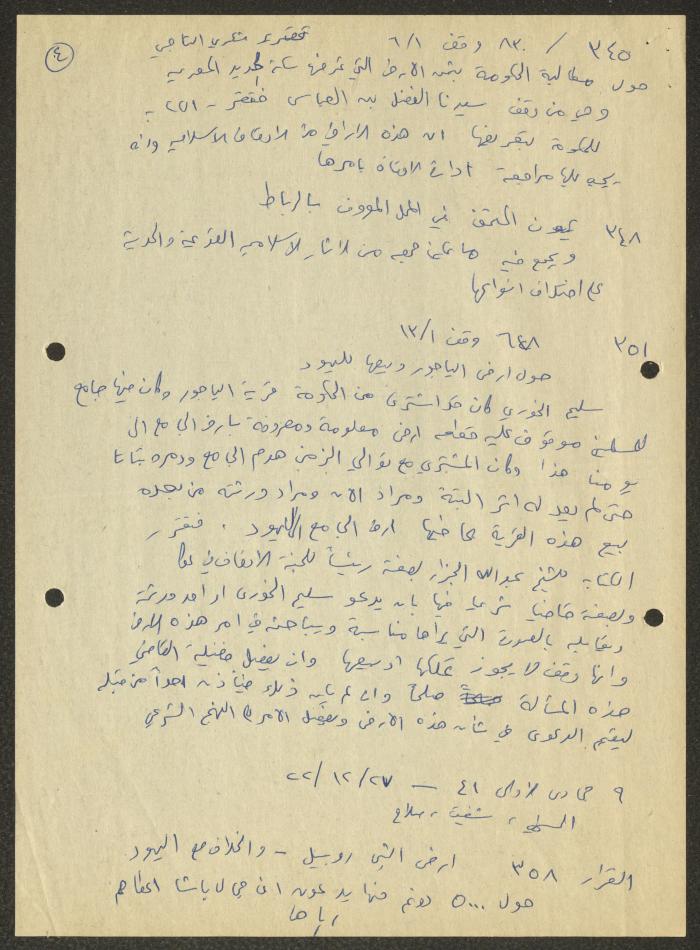 ٤
٣٤٥ / ٨٣٠ وقف ٦/١ تقرير شكري التاجي
حول مطالبة الحكومة بثمن الارض التي غرضها سكة الحديد المصرية
وهي من وقف سيدنا الفضل بن العباس فتقرر - الكتابة
للحكومة بتعريفها ان هذه الاراضي من الاوقاف الاسلامية وانه
يجب عليها مراجعة ادارة الاوقاف بامرها
٣٤٨ يكون المتحف في المحل المعروف بالرباط
ويجمع فيه ما يمكن جمعه من الاثار الاسلامية القديمة والحديثة
على اختلاف انواعها
٣٥١ ٦٤٨ وقف ١٣/١
حول ارض الياجور وبيعها لليهود
سليم الخوري كان قد اشترى من الحكومة قرية الياجور وكان فيها جامع
للمسلمين موقوف عليه قطعة ارض معلومة ومعروفة بارض الجامع الى
يومنا هذا وكان المشتري مع توالي الزمن هدم الجامع ودمره بتاتا
حتى لم يعد له اثر البتة ومراد الان ومراد ورثته من بعده
بيع هذه القرية بما فيها ارض الجامع لليهود . فتقرر
الكتابة للشيخ عبدالله الجزار بصفة رئيسا للجنة الاوقاف في عكا
وبصفة قاضيا شرعيا فيها بان يدعو سليم الخوري او احد ورثته
ويقابله بالصورة التي يراها مناسبة ويباحثه في امر هذه الارض
وانها وقف لا يجوز تملكها او بيعها وان يفصل فضيلة القاضي
هذه المسألة صلحا وان لم يكن ذلك فيأذن احدا من قبله
ليقيم الدعوى في شأن هذه الارض ويفصل الامر النهج الشرعي
٩ جمادى الاولى ٤١ — ٢٢/١٢/٢٧
القرار ٣٥٨ ارض النبي روبيل - والخلاف مع اليهود
حول ٥٠٠٠ دونم منها يدعون ان جمال باشا اعطاهم
اياها